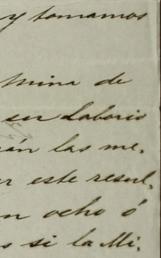 y tomamos
mina de
su laborio
rán las me-
r este resul-
n ocho ó
s si la Mi-